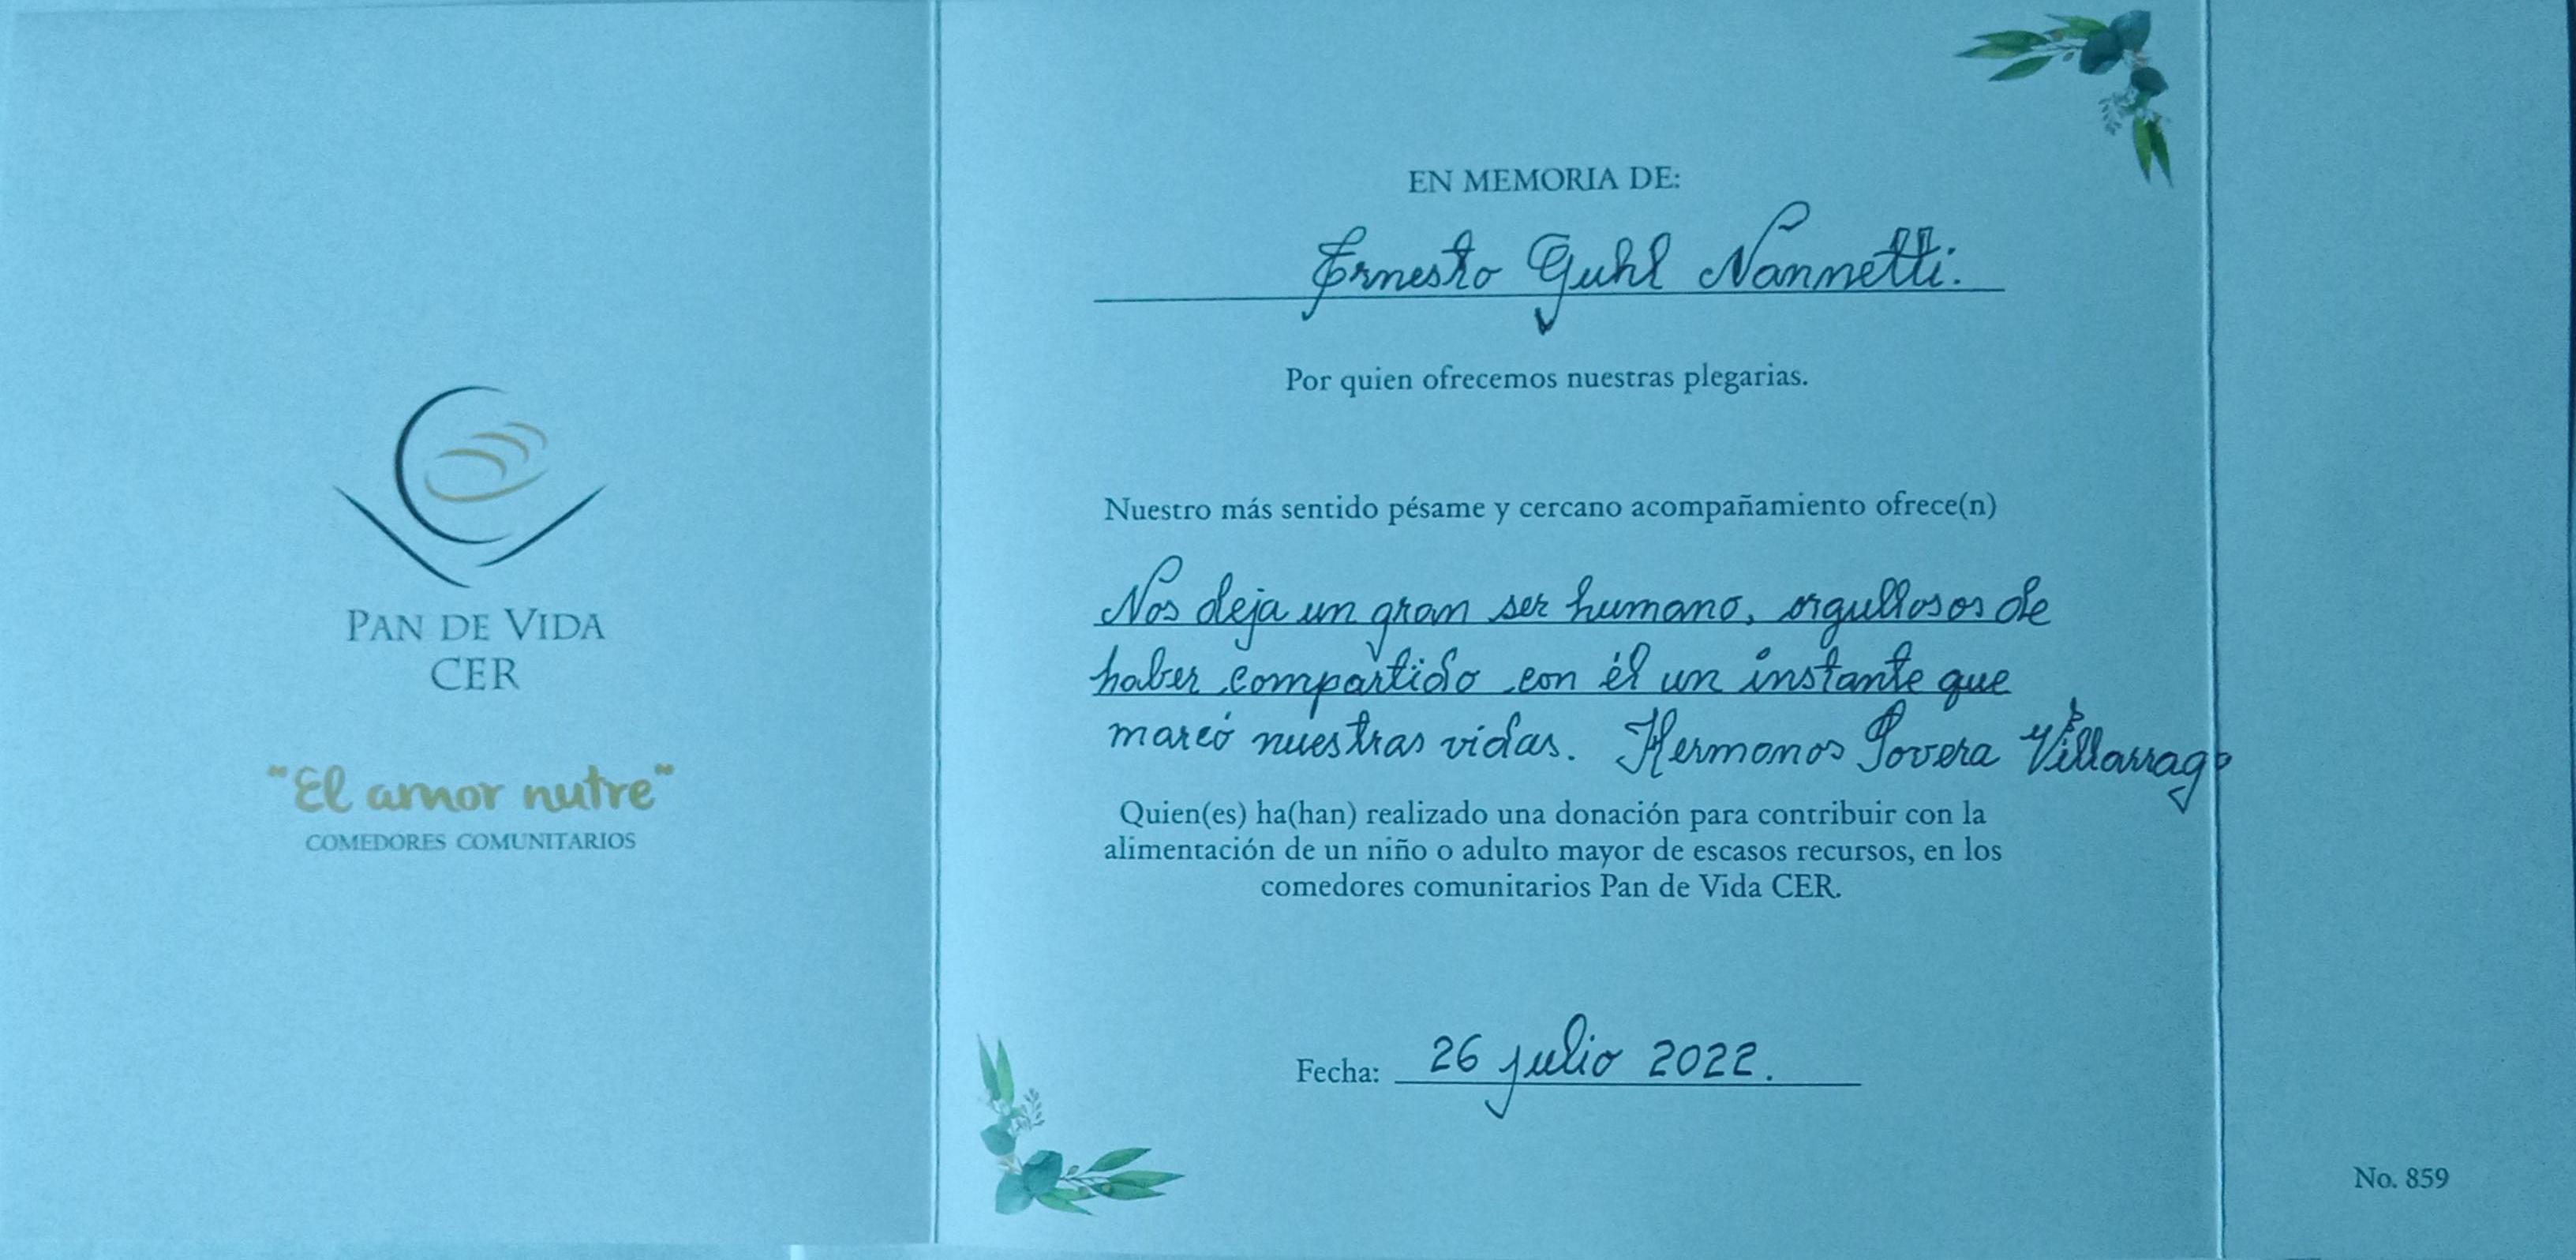 PAN DE VIDA
CER
"El amor nutre"
COMEDORES COMUNITARIOS
EN MEMORIA DE:
Ernesto Guhl Nannetti.
Por quien ofrecemos nuestras plegarias.
Nuestro más sentido pésame y cercano acompañamiento ofrece(n)
Nos deja un gran ser humano, orgullosos de
haber compartido con él un instante que
marcó nuestras vidas. Hermanos Tovera Villarraga
Quien(es) ha(han) realizado una donación para contribuir con la
alimentación de un niño o adulto mayor de escasos recursos, en los
comedores comunitarios Pan de Vida CER.
Fecha: 26 julio 2022.
No. 859